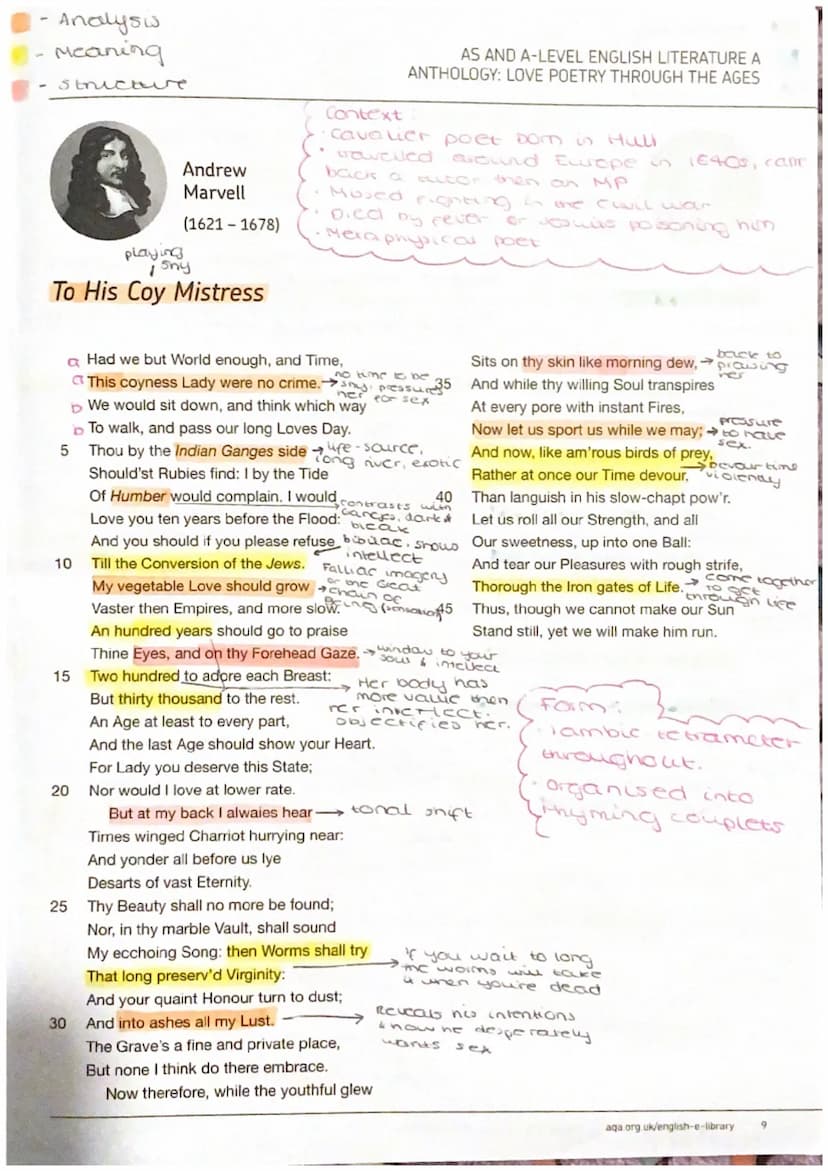 - Analysis
- Meaning
- Structure
AS AND A-LEVEL ENGLISH LITERATURE A
ANTHOLOGY: LOVE POETRY THROUGH THE AGES
Andrew
Marvell
(1621 – 1678)
Context:
· Cavalier poet born in Hull
· travelled around Europe in 1640s, came
back a tutor then an MP
· Missed fighting in the civil war
· Died by fever or Jesuits poisoning him
· Metaphysical poet
playing
shy
To His Coy Mistress
a Had we but World enough, and Time,
a This coyness Lady were no crime.
no time to be
shy, pressures
her for sex
b We would sit down, and think which way
b To walk, and pass our long Loves Day.
5 Thou by the Indian Ganges side
life-source,
long river, exotic
Should'st Rubies find: I by the Tide
Of Humber would complain. I would
contrasts with
Ganges, dark &
bleak
Love you ten years before the Flood:
And you should if you please refuse
biblical, shows
intellect
10 Till the Conversion of the Jews.
My vegetable Love should grow
Falliac imagery
or the Great
chain of
being
Vaster then Empires, and more slow.
An hundred years should go to praise
Thine Eyes, and on thy Forehead Gaze.
window to your
soul & intellect
15 Two hundred to adore each Breast:
But thirty thousand to the rest.
Her body has
more value then
her intellect.
objectifies her.
An Age at least to every part,
And the last Age should show your Heart.
For Lady you deserve this State;
20 Nor would I love at lower rate.
But at my back I alwaies hear
tonal shift
Times winged Charriot hurrying near:
And yonder all before us lye
Desarts of vast Eternity.
25 Thy Beauty shall no more be found;
Nor, in thy marble Vault, shall sound
My ecchoing Song: then Worms shall try
That long preserv'd Virginity:
If you wait to long
the worms will take
it when you're dead
And your quaint Honour turn to dust;
30 And into ashes all my Lust.
Reveals his intentions
& how he desperately
wants sex
The Grave's a fine and private place,
But none I think do there embrace.
Now therefore, while the youthful glew
Sits on thy skin like morning dew,
back to
praising
her
35 And while thy willing Soul transpires
At every pore with instant Fires,
Now let us sport us while we may;
pressure
to have
sex.
And now, like am'rous birds of prey,
Rather at once our Time devour,
Devour time
violently
40 Than languish in his slow-chapt pow'r.
Let us roll all our Strength, and all
Our sweetness, up into one Ball:
And tear our Pleasures with rough strife,
Thorough the Iron gates of Life.
come together
to get
through life
45 Thus, though we cannot make our Sun
Stand still, yet we will make him run.
Form:
· Iambic tetrameter
throughout.
· Organised into
rhyming couplets
aqa.org.uk/english-e-library 9